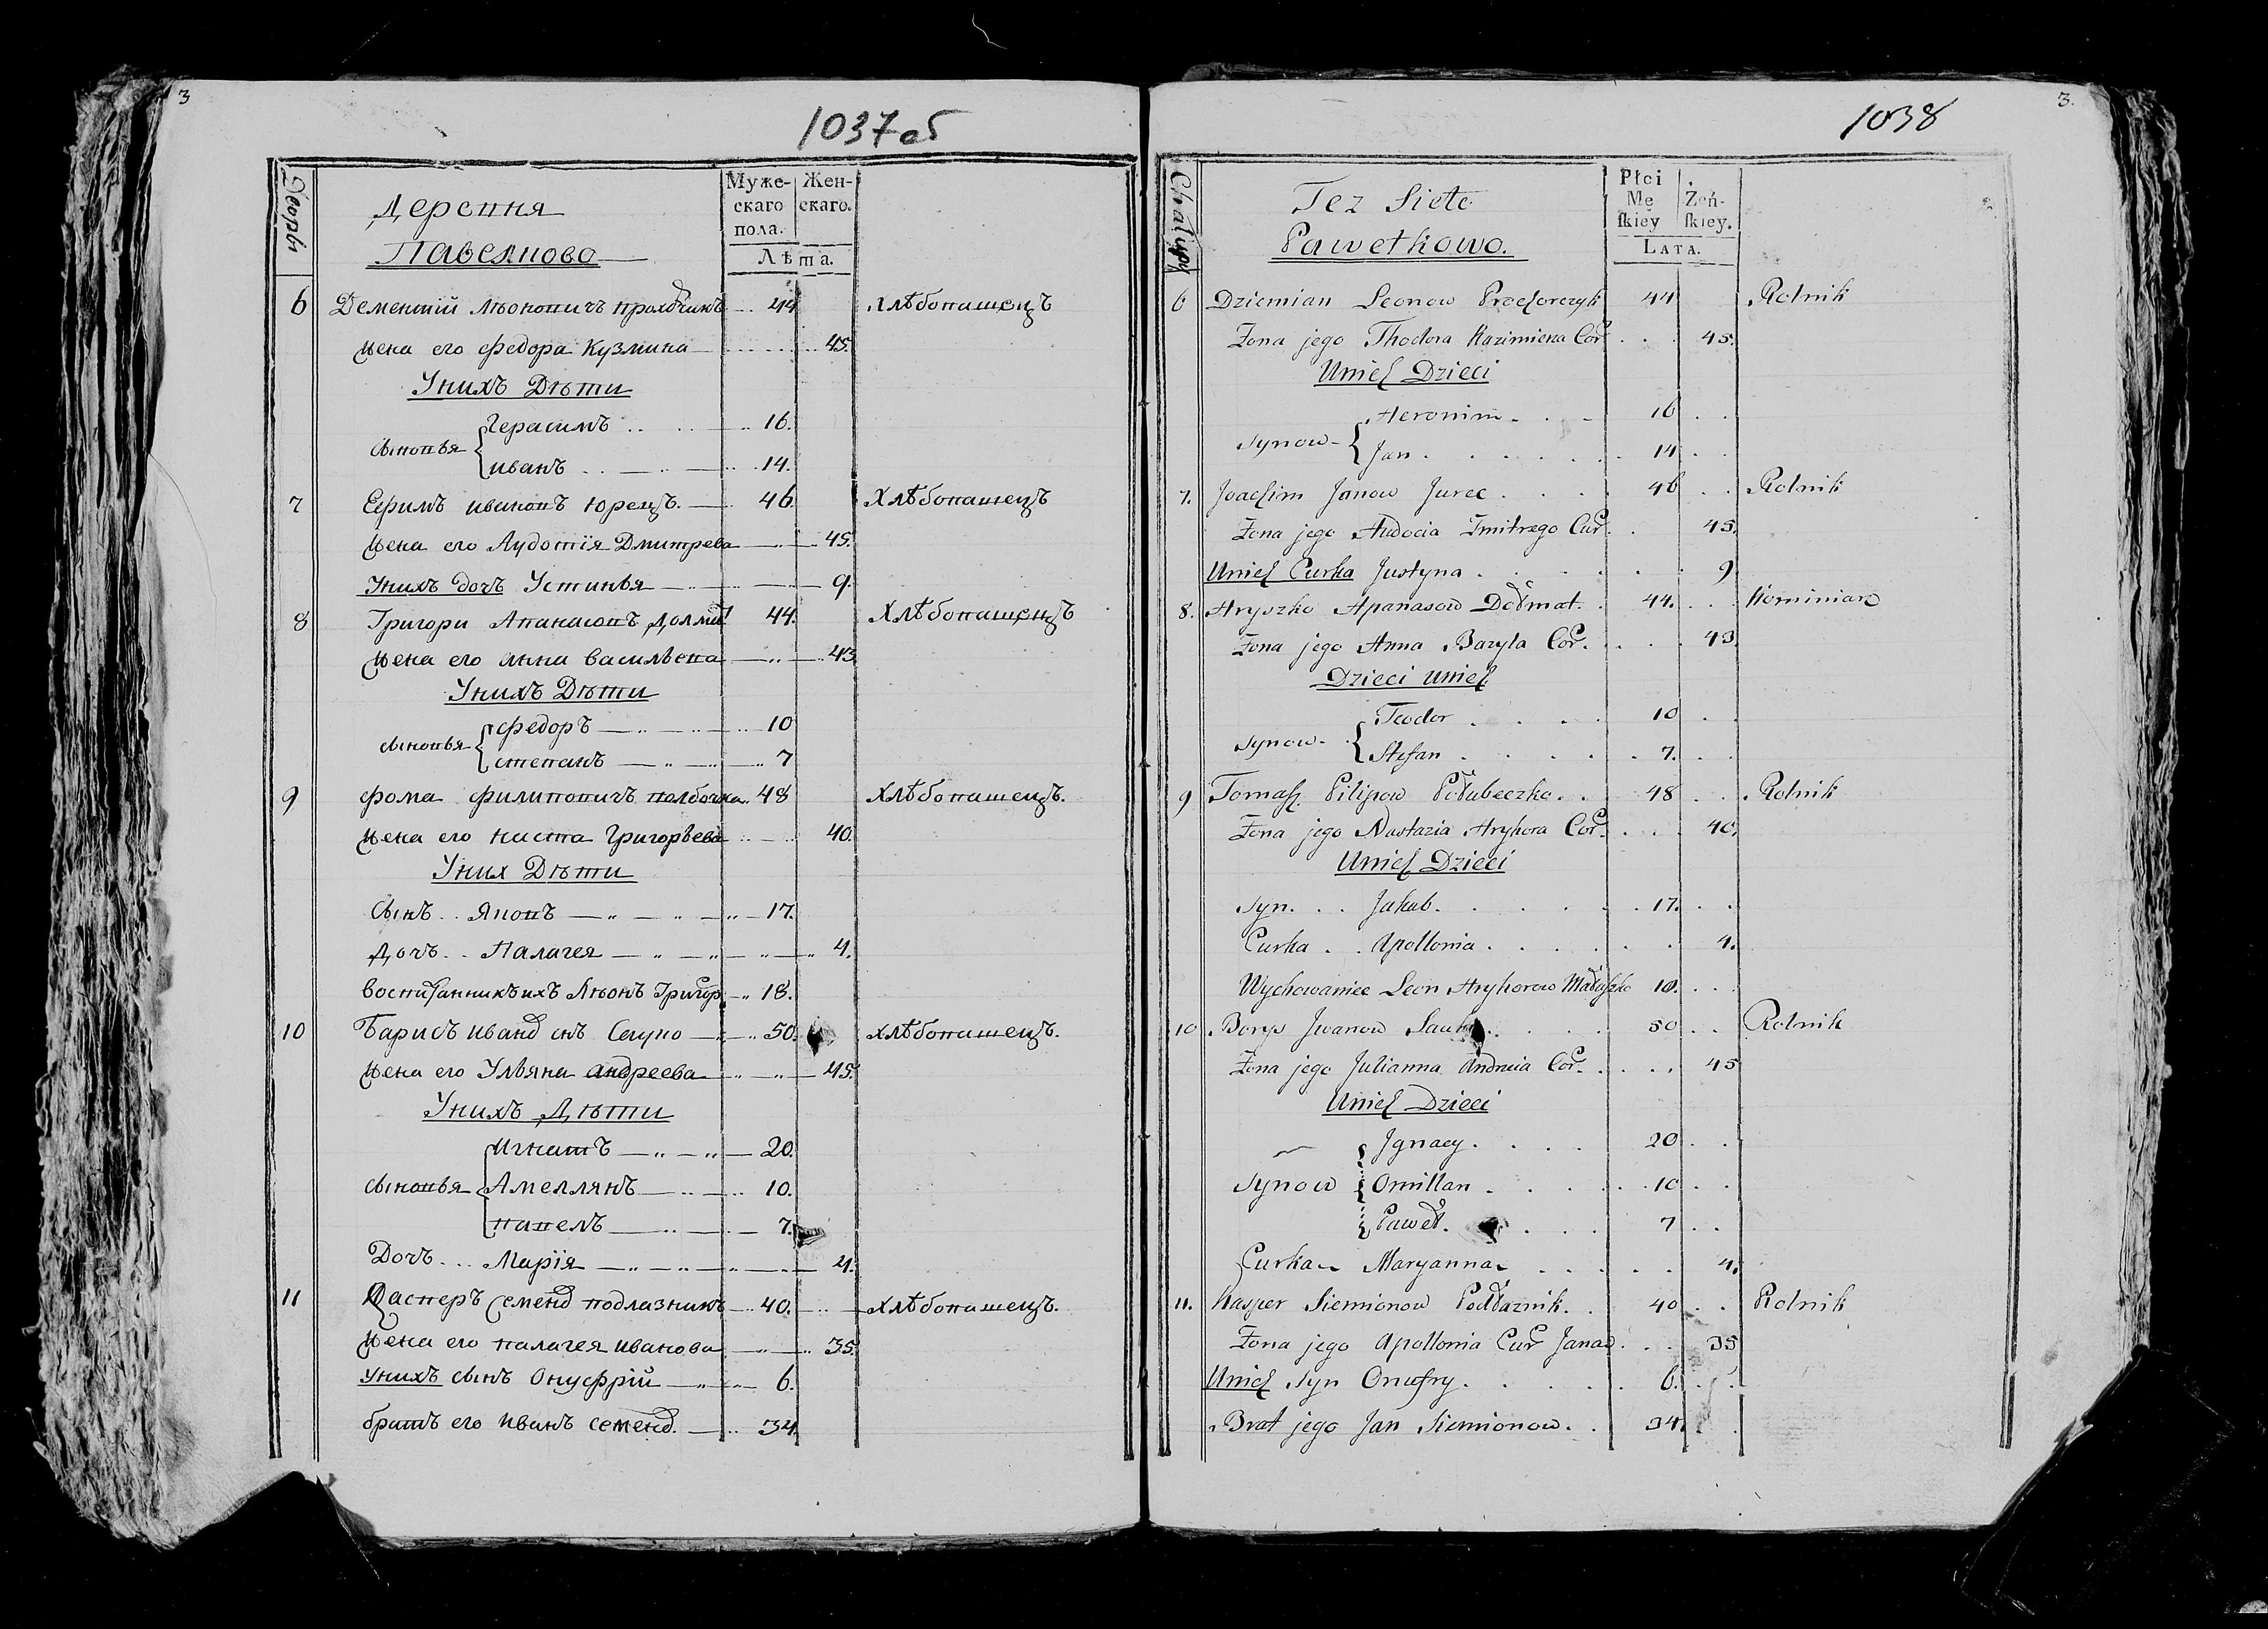 3
1037 об
Дворы
Деревня
Павелново
Муже-
скаго
пола.
Жен-
скаго.
Лѣта.
6 Дементій Лѣоновичъ 44 хлѣбопашецъ
жена его Федора Кузмина 45.
Унихъ Дѣти
сыновья Герасимъ 16.
иванъ 14.
7 Ефимъ ивановъ Юрецъ. 46 Хлѣбопашецъ
жена его Аудотія Дмитрева 45.
Унихъ дочъ Устинья 9.
8 Григори Апанасовъ 44. Хлѣбопашецъ
жена его анна василѣвна 43
Унихъ Дѣти
сыновья федоръ 10
степанъ 7
9 фома филиповичъ 48 Хлѣбопашецъ.
жена его наста Григорьева 40.
Уних Дѣти
Сынъ Яковъ 17.
Дочъ Палагея 4.
воспитанникъ ихъ Лѣонъ Григор 18.
10 Барисъ иванов снъ 50. хлѣбопашецъ.
жена его Ульяна андреева 45.
Унихъ Дѣти
сыновья игнатъ 20.
Амеллянъ 10.
павелъ 7.
Дочъ Марія 4.
11 Касперъ Семенов подлазникъ 40. Хлѣбопашецъ.
жена его палагея иванова 35.
Унихъ сынъ Онуфрій 6.
братъ его иванъ семенов. 34.
3.
1038
Chałupy
Tez Sioło
Pawełkowo.
Płci
Mę
ſkiey
Żeń-
ſkiey.
LATA.
6 Dziemian Leonow 44 Rolnik
Żona jego Theodora Kazimierza Cor 45.
Unich Dzieci
Synow Heronim 16
Jan 14
7. Joachim Janow Jurec 46 Rolnik
Żona jego Audocia Dmitrego Cur 45.
Unich Curka Justyna 9
8. Hryszko Apanasow Dołmat. 44.
Żona jego Anna Bazyla Cor. 43
Dzieci unich
Synow Teodor 10
Stefan 7.
9 Tomaſz Pilipow Połubeczko 48 Rolnik
Żona jego Nastazia Hryhora Cor. 40.
Unich Dzieci
Syn. Jakub. 17.
Curka Apollonia 4.
Wychowaniec Leon Hryhorow 18.
10 Borys Iwanow 50 Rolnik
Żona jego Julianna Andreia Cor. 45
Unich Dzieci
Synow Ignacy. 20
Omillan 10
Paweł. 7
Curka Maryanna 4.
11. Kasper Siemionow Podłaznik. 40 Rolnik
Żona jego Apollonia Cur Jana 35
Unich Syn Onufry. 6.
Brat jego Jan Siemionow. 34.